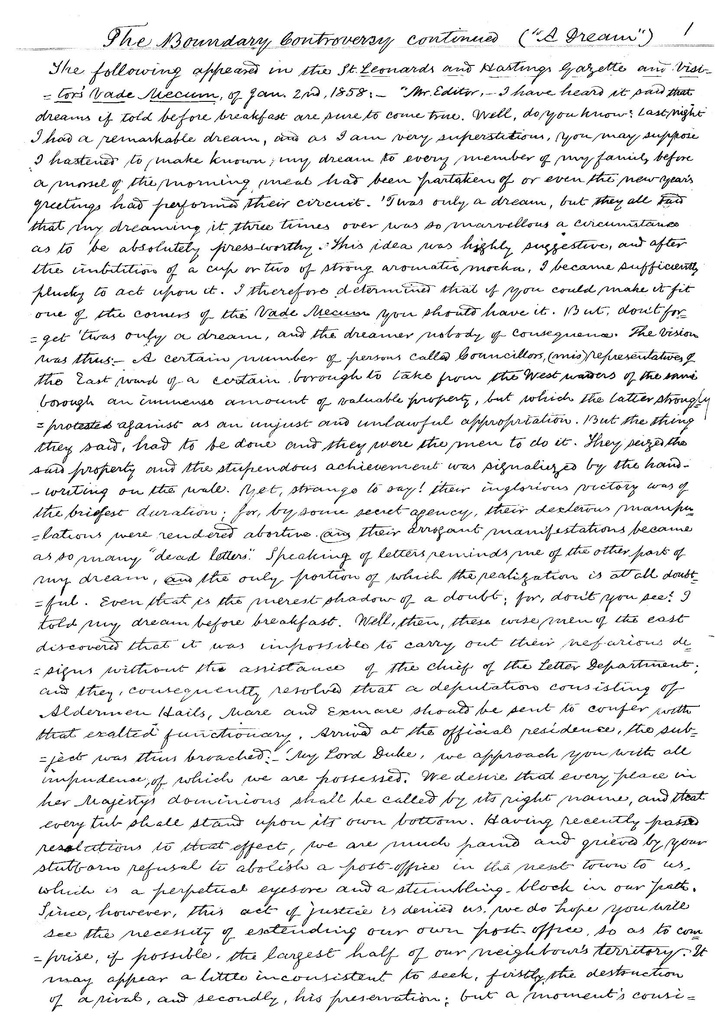 The Boundary Controversy continued ("A Dream") 1
The following appeared in the St. Leonards and Hastings Gazette and Visi-
-tors' Vade Mecum, of Jan. 2nd, 1858:- "Mr. Editor,- I have heard it said that
dreams if told before breakfast are sure to come true. Well, do you know? last night
I had a remarkable dream, and as I am very superstitious, you may suppose
I hastened to make known, my dream to every member of my family, before
a morsel of the morning meal had been partaken of or even the new year's
greetings had performed their circuit. 'Twas only a dream, but they all said
that my dreaming it three times over was so marvellous a circumstance
as to be absolutely press-worthy. This idea was highly suggestive, and after
the imbibition of a cup or two of strong aromatic mocha, I became sufficiently
plucky to act upon it. I therefore determined that if you could make it fit
one of the corners of the Vade Mecum you should have it. But, don't for-
=get 'twas only a dream, and the dreamer nobody of consequence. The vision
was thus:- A certain number of persons called Councillors, (mis)representatives of
the East ward of a certain borough to take from the West warders of the same
borough an immense amount of valuable property, but which the latter strongly
=protested against as an unjust and unlawful appropriation. But the thing
they said, had to be done and they were the men to do it. They seized the
said property and the stupendous achievement was signalized by the hand-
-writing on the wall. Yet, strange to say! their inglorious victory was of
the briefest duration; for, by some secret agency, their dexterous manipu-
=lations were rendered abortive and their arrogant manifestations became
as so many "dead letters". Speaking of letters reminds me of the other part of
my dream, and the only portion of which the realization is at all doubt-
=ful. Even that is the merest shadow of a doubt; for, don't you see? I
told my dream before breakfast. Well, then, these wise men of the east
discovered that it was impossible to carry out their nefarious de-
=signs without the assistance of the chief of the Letter Department;
and they, consequently resolved that a deputation consisting of
Aldermen Hails, Mare and Exmare should be sent to confer with
that exalted functionary. Arrived at the official residence, the sub-
=ject was thus broached:- 'My Lord Duke, we approach you with all
impudence, of which we are possessed. We desire that every place in
her Majesty's dominions shall be called by its right name, and that
every tub shall stand upon its own bottom. Having recently passed
resolutions to that effect, we are much pained and grieved by your
stubborn refusal to abolish a post-office in the next town to us,
which is a perpetual eyesore and a stumbling-block in our path.
Since, however, this act of justice is denied us, we do hope you will
see the necessity of extending our own post-office, so as to com-
=prise, if possible, the largest half of our neighbour's territory. It
may appear a little inconsistent to seek, firstly, the destruction
of a rival, and secondly, his preservation; but a moment's consi-